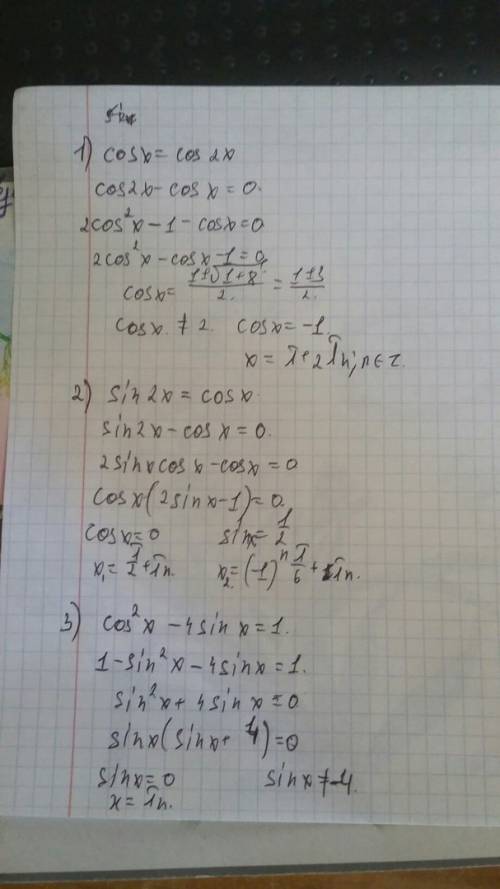 1) cosx = cos 2x
cos2x - cos x = 0.
2cos²x - 1 - cosx = 0
2cos²x - cosx - 1 = 0
cosx = (1±√1+8)/2. = (1±3)/2.
cosx ≠ 2. cosx = -1.
x = π + 2πn; n∈z.
2) sin2x = cosx.
sin2x - cosx = 0.
2sinxcosx - cosx = 0
cosx(2sinx-1) = 0.
cosx = 0 sinx = 1/2
x₁ = π/2 + πn. x₂ = (-1)ⁿ π/6 + πn.
3) cos²x - 4sinx = 1.
1 - sin²x - 4sinx = 1.
sin²x + 4sinx = 0
sinx(sinx + 4) = 0
sinx = 0 sinx ≠ -4.
x = πn.